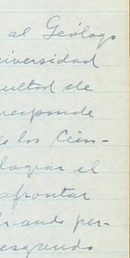 al Geólogo
niversidad
cultad de
rresponde
e los Cien-
lograr el
afrontar
ficando per-
esgundo